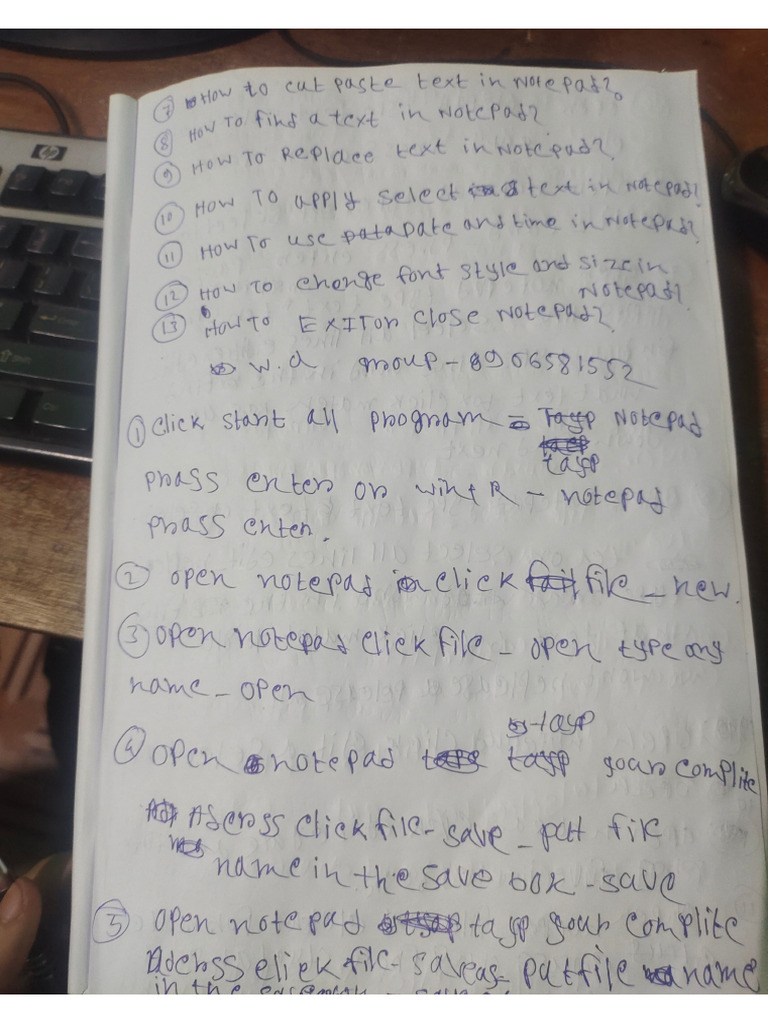 hp
⑦ How to cut paste text in Notepad?
⑧ How To find a text in Notepad?
⑨ How To Replace text in Notepad?
⑩ How To apply select text in Notepad?
⑪ How To use Date and time in Notepad?
⑫ How To change font style and size in
Notepad?
⑬ How To EXIT or close Notepad?
w.a group - 8906581552
① Click start all program = Tayp Notepad
tayp
prass enter or win+R - notepad
prass enter.
② open notepad click file - new.
③ open notepad click file - open type any
name - open
tayp
④ open notepad your complite
Adenss click file - save - patt file
name in the save box - save
⑤ open notepad tayp your complite
Adenss click file - saveas - pat file name
in the